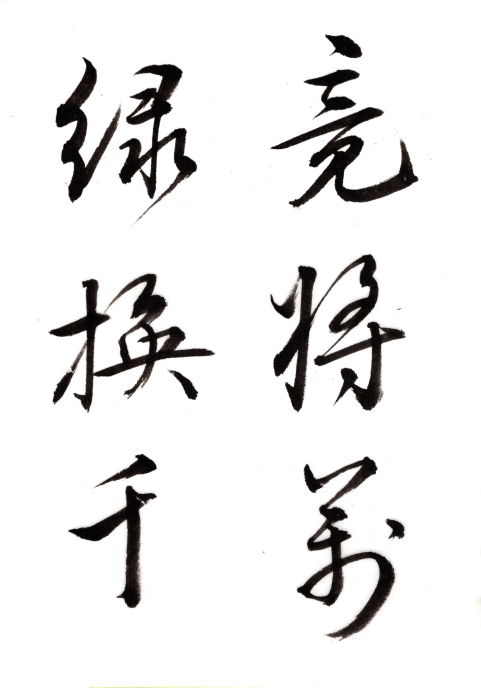 竟将萬
绿换千